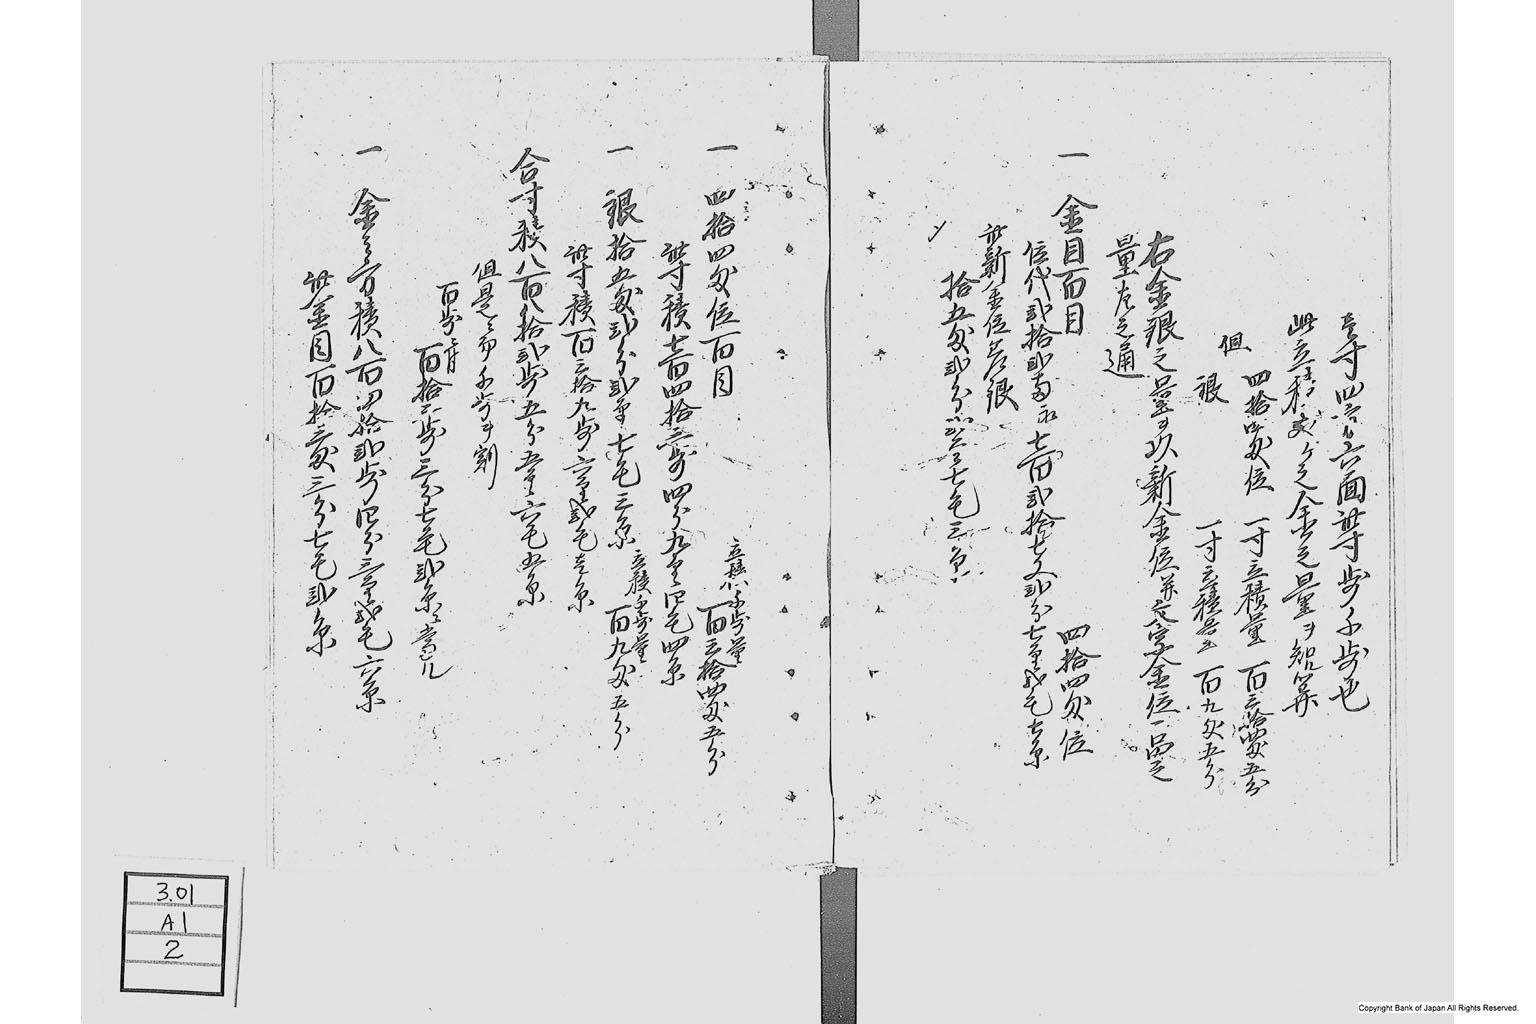 壱寸四方六面此寸歩千歩也
此立積交ケ之金之量ヲ知算
但 四拾四匁位 一寸立積量 百三拾四匁五分
銀 一寸立積量 百九匁五分
右金銀之量ヲ以新金位并定寄金位一品之
量左之通
一 金目百目 四拾四匁位
位代弐拾弐両永七百弐拾七文弐分七厘弐毛七糸
此新金位差銀
拾五匁弐分弐厘七毛三糸
一 四拾四匁位百目 立積千歩量 百三拾四匁五分
此寸積七百四拾三歩四分九厘四毛四糸
一 銀拾五匁弐分弐厘七毛三糸 立積千歩量 百九匁五分
此寸積百三拾九歩六厘弐毛壱糸
合寸積八百八拾弐歩五分五厘六毛五糸
但是ヲ而千歩ヲ割
百歩ニ付
百拾三歩三分七毛弐糸ニ当ル
一 金之方積八百四拾弐歩四分三厘弐毛六糸
此金目百拾三匁三分七毛弐糸
3.01
A1
2
Copyright Bank of Japan All Rights Reserved.